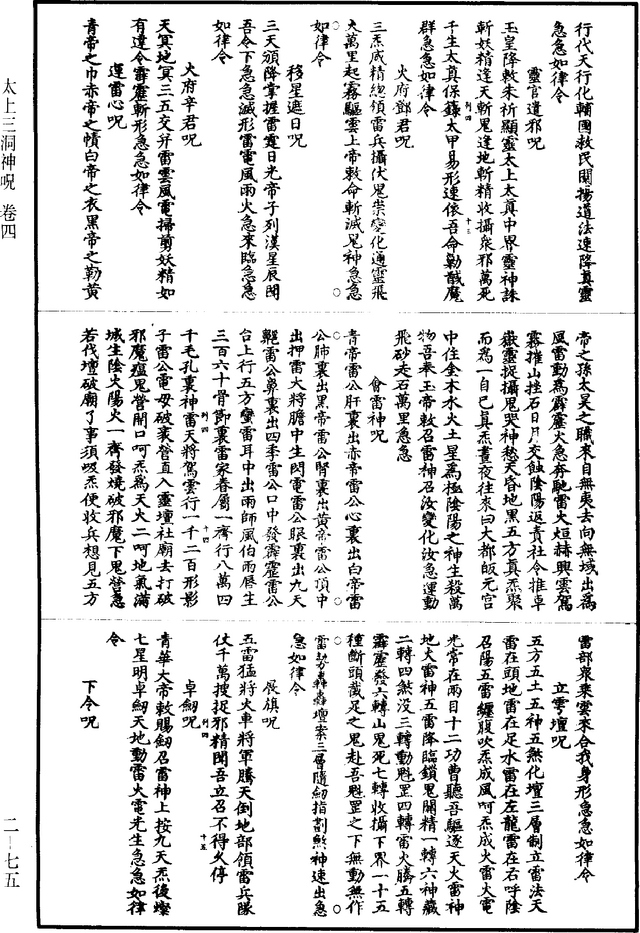 太上三洞神呪　卷四
二—七五
行代天行化輔國救民闡揚道法速降真靈
急急如律令
靈官遣邪呪
玉皇降敕未祈顯靈太上太真中界靈神誅
斬妖精逢天斬鬼逢地斬精收攝衆邪萬死
列四　十三
千生太真保籙太甲易形速依吾命勦馘魔
群急急如律令
火府鄧君呪
三炁威精揔領雷兵攝伏鬼祟變化通靈飛
大萬里起霧驅雲上帝敕命斬滅鬼神急急
如律令
移星遮日呪
三天頒降掌握雷霆日光帝子列漢星辰聞
吾令下急急滅形雷電風雨火急來臨急急
如律令
火府辛君呪
天冥地冥三五交并雷霆風電掃剪妖精如
有違令霹靂斬形急急如律令
運雷心呪
青帝之巾赤帝之幘白帝之衣黑帝之勒黄
帝之孫太昊之職來自無夷去向無域出為
風雷動為霹靂火急奔馳雷火烜赫興雲駕
霧推山拄石日月交蝕陰陽返責社令推卓
嶽靈捉攝鬼哭神愁天昏地黑五方真炁聚
而為一自巳真炁晝夜往來曰大都皈元宫
中住金木水火土星為極陰陽之神生殺萬
物吾奉玉帝敕召雷神召汝變化汝急運動
飛砂走石萬里急急
會雷神呪
青帝雷公肝裏出赤帝雷公心裏出白帝雷
公肺裏出黑帝雷公腎裏出黄帝雷公頂中
出押雷大將膽中生閃電雷公眼裏出九天
鼿雷公鼻裏出四季雷公口中發霹靂雷公
台上行五方蠻雷耳中出雨師風伯兩唇生
三百六十骨節裏雷家眷屬一齊行八萬四
千毛孔裏神雷天將駕雲行一千二百形影
列四　十四
子雷公電母破裏營直入靈壇社廟去打破
邪魔瘟鬼營開口呵炁為天火二呵地氣滿
城生陰火陽火一齊發燒破邪魔下鬼營急
若伐壇破廟了事須吸炁便收兵想見五方
雷部衆乘雲來合我身形急急如律令
立雷壇呪
五方五土五神五煞化壇三層制立雷法天
雷在頭地雷在足水雷在左龍雷在右呼陰
召陽五雷纏腹吹炁成風呵炁成火雷火電
光常在兩目十二功曹聽吾驅逐天火雷神
地火雷神五雷降臨鎖鬼開精一轉六神藏
二轉四煞没三轉動魁罡四轉雷火騰五轉
霹靂發六轉山鬼死七轉收攝下界一十五
種斷頭截足之鬼赴吾魁罡之下無動無作
雷勢轟轟壇案三層隨劒指劃煞神速出急
急如律令
展旗呪
五雷猛將火車將軍騰天倒地部領雷兵隊
仗千萬搜捉邪精聞吾立召不得久停
列四　十五
卓劒呪
青華大帝敕賜劒召雷神上按九天炁後燦
七星明卓劒天地動雷火電光生急急如律
令
下令呪